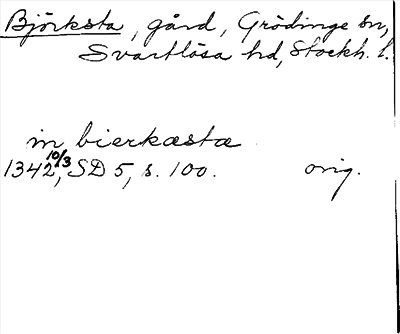 Björksta, gård, Grödinge sn,
Svartlösa hd, Stockh. l.
in bierkasta
1342 10/3, SD 5, s. 100. orig.